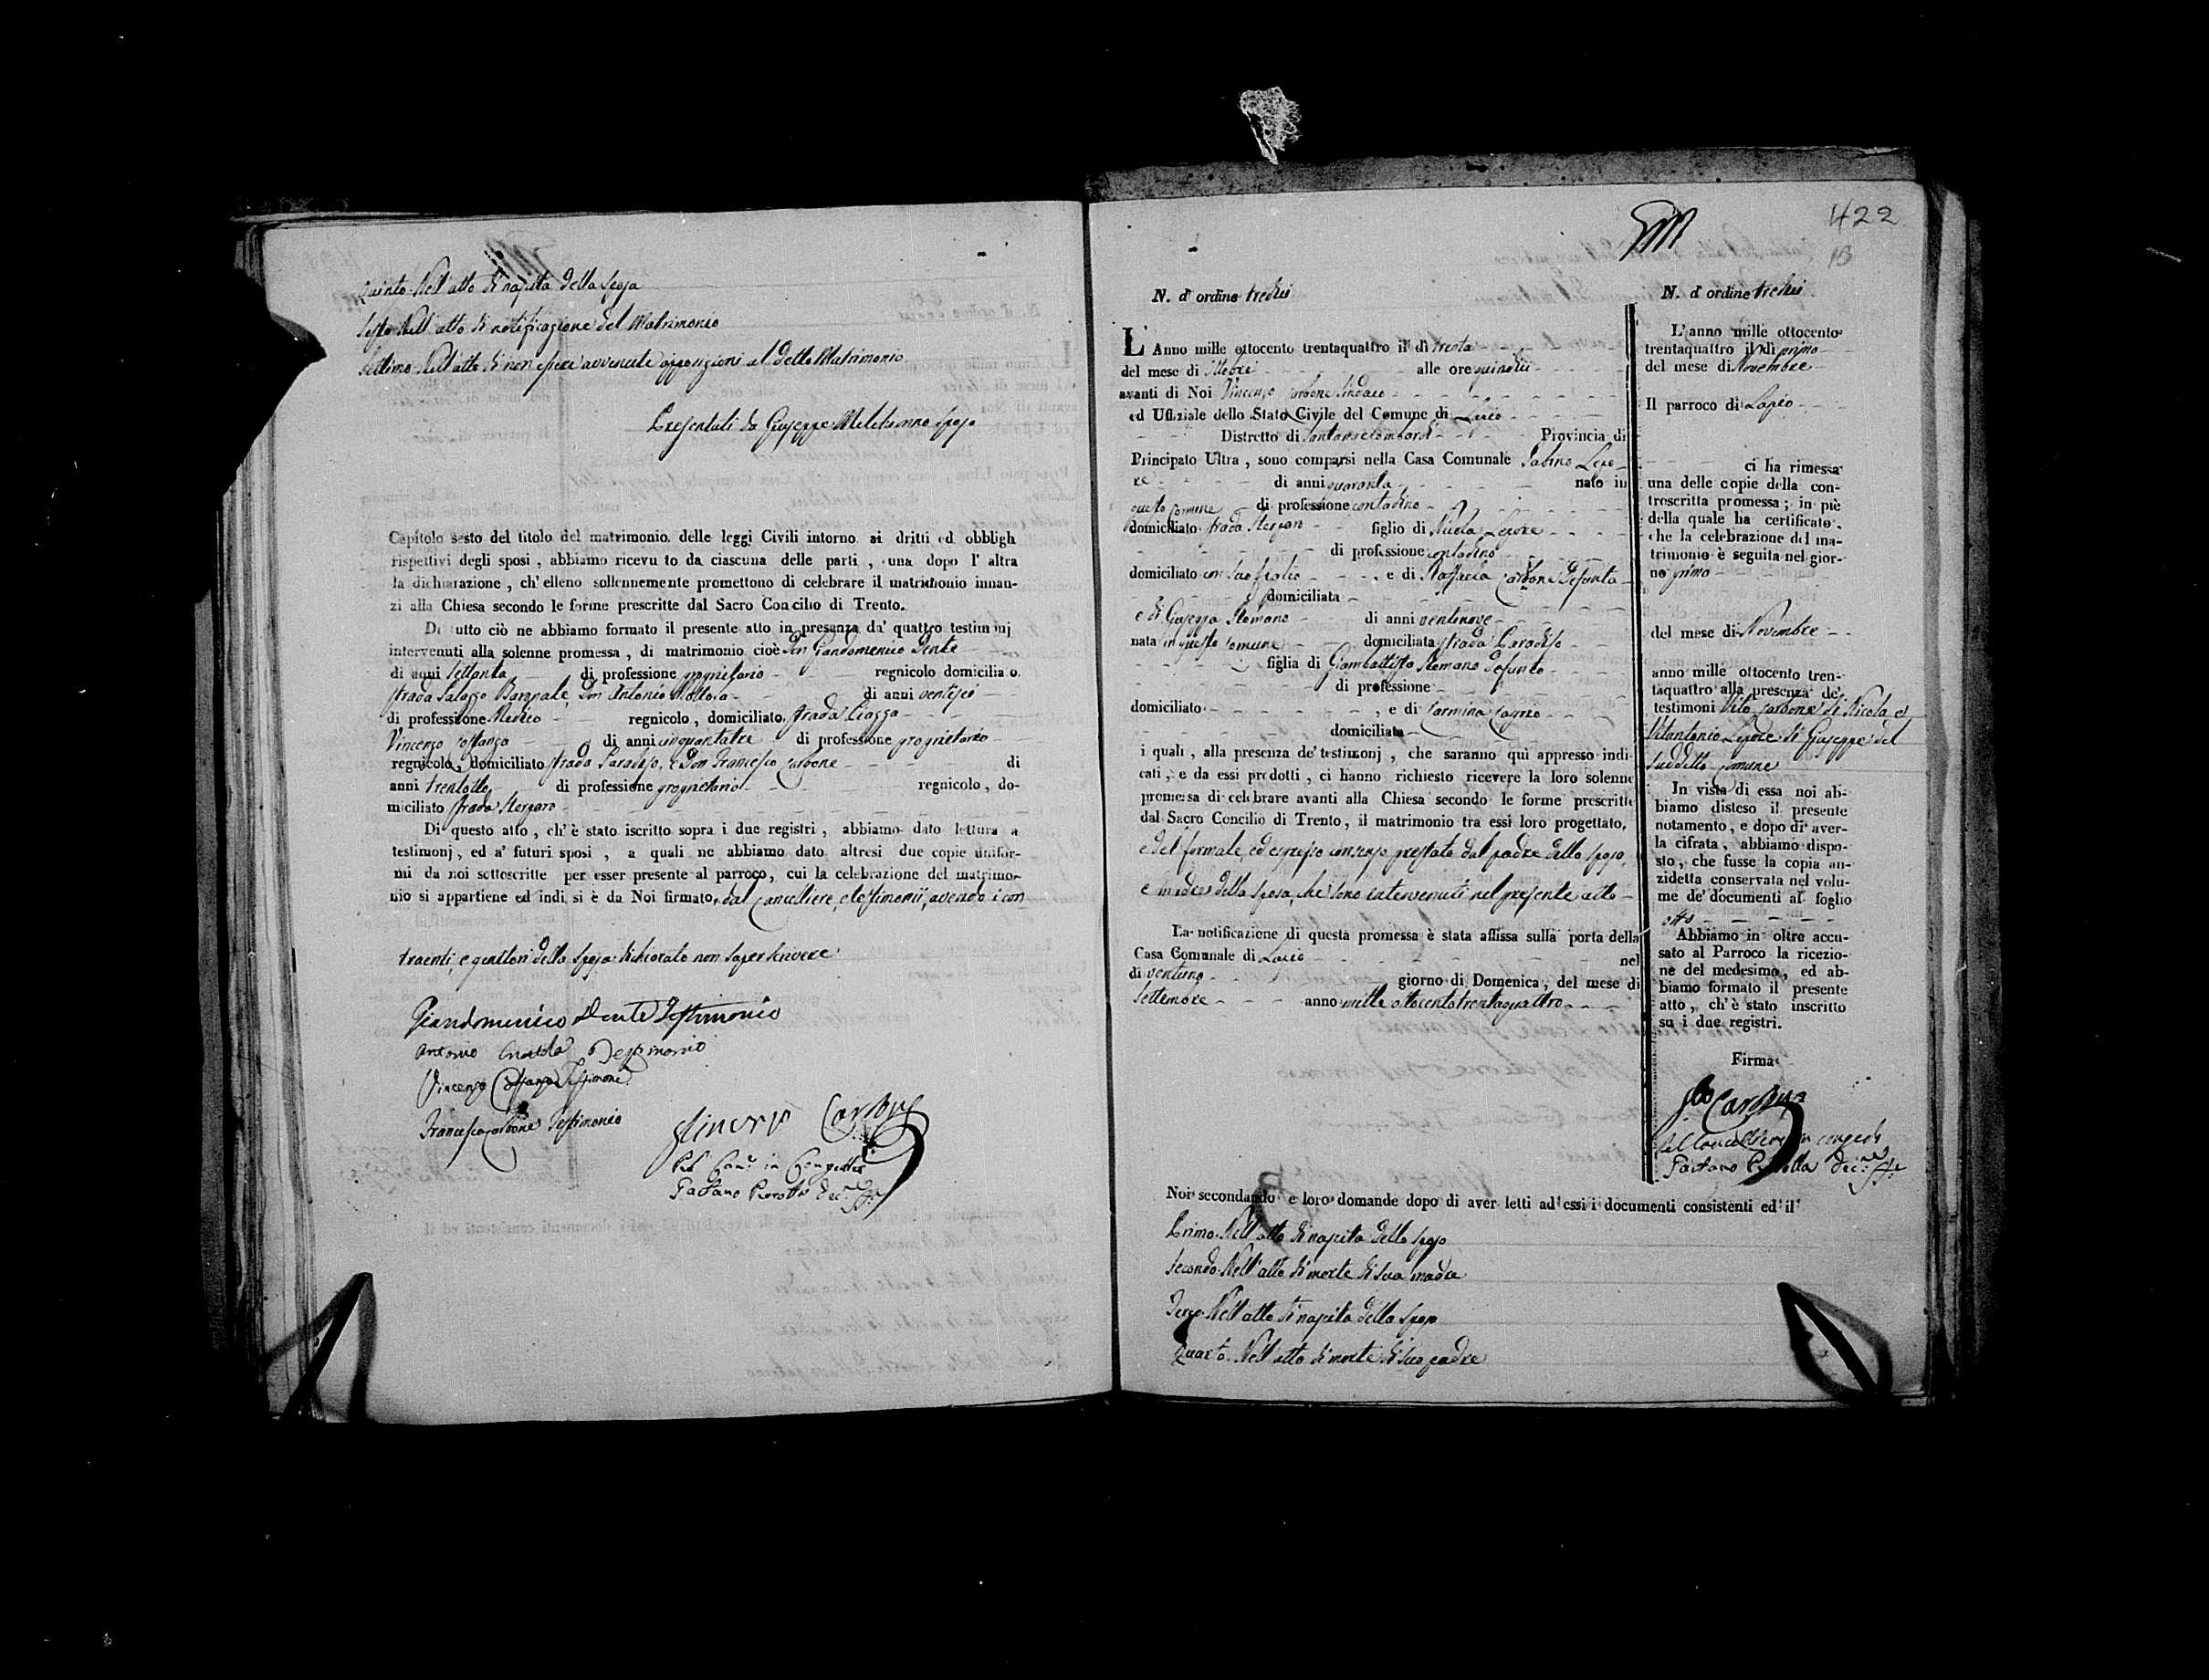 Quinto Nell'atto di nascita della sposa
Sesto Nell'atto di notificazione del Matrimonio
Settimo Nell'atto di non essere avvenute opposizioni al detto Matrimonio
Presentati da Giuseppe sposo
Capitolo sesto del titolo del matrimonio delle leggi Civili intorno ai dritti ed obbligh
rispettivi degli sposi , abbiamo ricevu to da ciascuna delle parti , una dopo l' altra
la dichiarazione , ch' elleno sollennemente promettono di celebrare il matrimonio innan-
zi alla Chiesa secondo le forme prescritte dal Sacro Concilio di Trento.
Di tutto ciò ne abbiamo formato il presente atto in presenza da' quattro testimonj
intervenuti alla solenne promessa , di matrimonio cioè Don Giandomenico Dente
di anni Settanta di professione proprietario regnicolo domiciliato
strada Palazzo Don Antonio di anni ventisei
di professione Medico regnicolo , domiciliato strada Piazza
Vincenzo Costanza di anni cinquantatre di professione proprietario
regnicolo , domiciliato strada Paradiso, e Don Francesco Carbone di
anni trentotto di professione proprietario regnicolo , do-
miciliato strada
Di questo atto , ch' è stato iscritto sopra i due registri , abbiamo dato lettura a
testimonj , ed a' futuri sposi , a quali ne abbiamo dato altresì due copie unifor-
mi da noi sottoscritte per esser presente al parroco, cui la celebrazione del matrimo-
nio si appartiene ed indi si è da Noi firmato, dal Cancelliere, e testimonii, avendo i con
traenti, e genitori della sposa dichiarato non saper scrivere
Giandomenico Dente Testimonio
Antonio Testimonio
Vincenzo Costanza Testimone
Francesco Carbone Testimonio
Vincenzo Carbone
Pel Canc.re in Congedo
Gaetano Dec.ne
422
13
N. d' ordine tredici
L' Anno mille ottocento trentaquattro il dì trenta
del mese di Ottobre alle ore quindici
avanti di Noi Vincenzo Carbone Sindaco
ed Ufiziale dello Stato Civile del Comune di Lapio
Distretto di Santangelo Lombardi Provincia di
Principato Ultra , sono comparsi nella Casa Comunale Sabino Lepo
re di anni quaranta nato in
questo Comune di professione contadino
domiciliato strada figlio di Nicola Lepore
di professione contadino
domiciliato con suo figlio , e di Raffaela Carbone defunta
domiciliata
e di Giuseppa Romano di anni ventinove
nata in questo Comune domiciliata strada Paradiso
figlia di Giambattista Romano defunto
di professione
domiciliato , e di Carmina
domiciliata
i quali , alla presenza de' testimonj , che saranno quì appresso indi-
cati , e da essi prodotti , ci hanno richiesto ricevere la loro solenne
promessa di celebrare avanti alla Chiesa secondo le forme prescritte
dal Sacro Concilio di Trento , il matrimonio tra essi loro progettato,
e del formale, ed espresso consenso prestato dal padre dello sposo,
e madre della sposa, che sono intervenuti nel presente atto
La notificazione di questa promessa è stata affissa sulla porta della
Casa Comunale di Lapio nel
dì ventuno giorno di Domenica , del mese di
Settembre anno mille ottocentotrentaquattro
Noi secondando e loro domande dopo di aver letti ad essi i documenti consistenti ed il
Primo. Nell'atto di nascita dello sposo
Secondo. Nell'atto di morte di sua madre
Terzo. Nell'atto di nascita della sposa
Quarto. Nell'atto di morte di suo padre
N. d' ordine tredici
L' anno mille ottocento
trentaquattro il dì primo
del mese di Novembre
Il parroco di Lapio
ci ha rimessa
una delle copie della con-
troscritta promessa ; in piè
della quale ha certificato,
che la celebrazione del ma-
trimonio è seguita nel gior-
no primo
del mese di Novembre
anno mille ottocento tren-
taquattro alla presenza de'
testimoni Vito Carbone di Nicola, e
Vitantonio Lepore di Giuseppe del
suddetto Comune
In vista di essa noi ab-
biamo disteso il presente
notamento, e dopo di aver-
la cifrata, abbiamo dispo-
sto, che fusse la copia an-
zidetta conservata nel volu-
me de' documenti al foglio
otto
Abbiamo in oltre accu-
sato al Parroco la ricezio-
ne del medesimo, ed ab-
biamo formato il presente
atto, ch' è stato inscritto
su i due registri.
Firma
Carbone
Pel Cancelliere in congedo
Gaetano Dec.ne